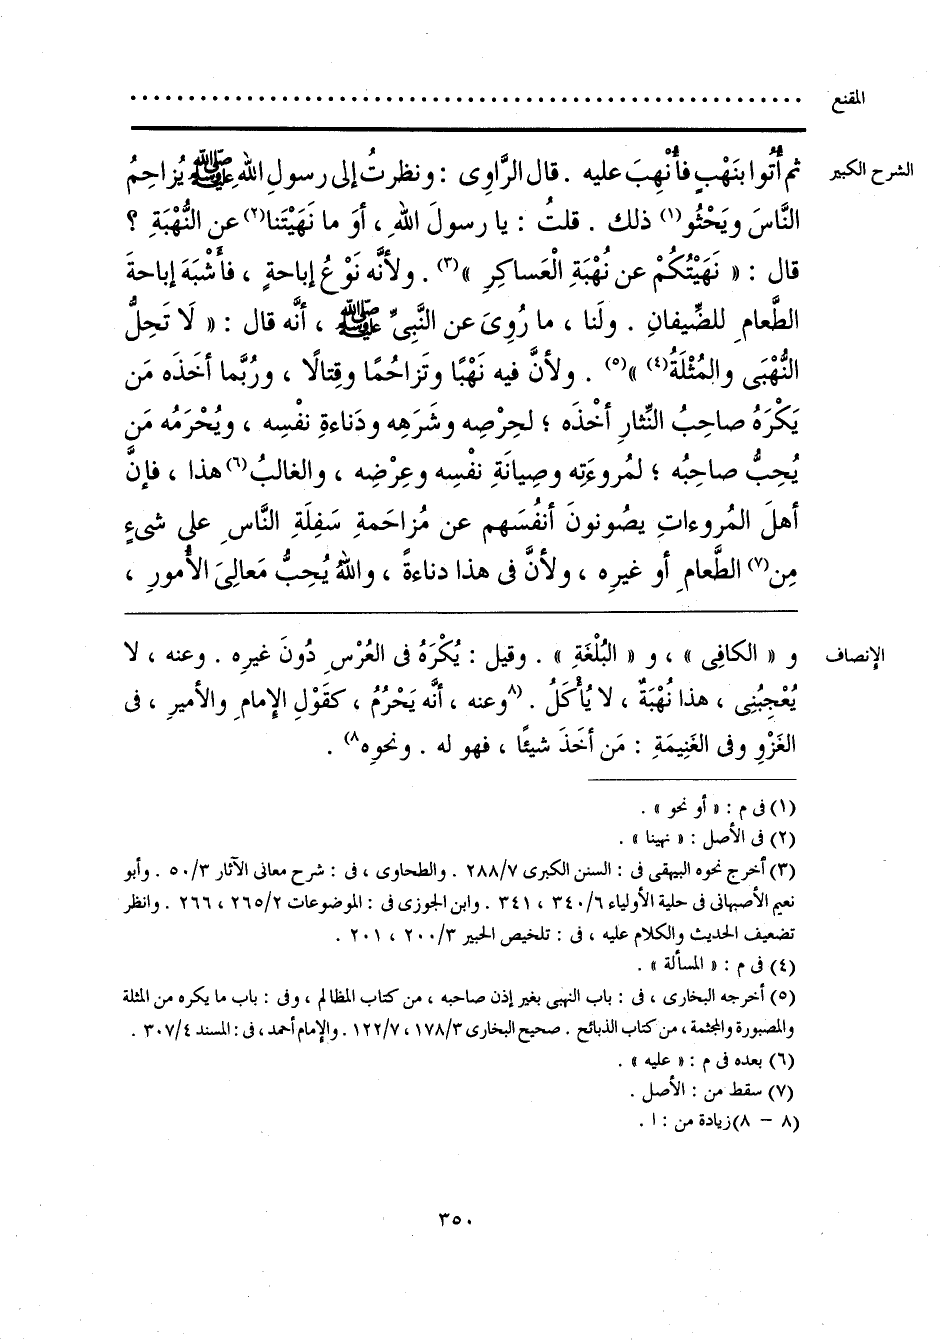 المقنع ............................................................
الشرح الكبير ثم أُتُوا بنَهْبٍ فأُنْهِبَ عليه . قال الرَّاوِى : ونظرتُ إلى رسولِ اللهِ ﷺ يُزاحِمُ
النَّاسَ ويَحْثُو(١) ذلك . قلتُ : يا رسولَ اللهِ ، أوَ ما نَهَيْتَنا(٢) عن النُّهْبَةِ ؟
قال : « نَهَيْتُكُمْ عن نُهْبَةِ الْعَساكِرِ »(٣) . ولأنَّه نَوْعُ إباحةٍ ، فأَشْبَهَ إباحةَ
الطَّعامِ للضِّيفانِ . ولَنا ، ما رُوِىَ عن النَّبىِّ ﷺ ، أنَّه قال : « لَا تَحِلُّ
النُّهْبَى والمُثْلَةُ(٤) »(٥) . ولأنَّ فيه نَهْبًا وتَزاحُمًا وقِتالًا ، ورُبَّما أخَذَه مَن
يَكْرَهُ صاحِبُ النِّثارِ أخْذَه ؛ لحِرْصِه وشَرَهِه ودَناءةِ نفْسِه ، ويُحْرَمُه مَن
يُحِبُّ صاحِبُه ؛ لمُروءَتِه وصِيانَةِ نفْسِه وعِرْضِه ، والغالبُ(٦) هذا ، فإنَّ
أهلَ المُروءاتِ يصُونونَ أنفُسَهم عن مُزاحَمةِ سَفِلَةِ النَّاسِ على شىءٍ
مِن(٧) الطَّعامِ أو غيرِه ، ولأنَّ فى هذا دناءةً ، واللهُ يُحِبُّ مَعالِىَ الأُمورِ ،
الإنصاف و « الكافِى » ، و « البُلْغَةِ » . وقيل : يُكْرَهُ فى العُرْسِ دُونَ غيرِه . وعنه ، لا
يُعْجِبُنِى ، هذا نُهْبَةٌ ، لا يُؤْكَلُ . (٨وعنه ، أنَّه يَحْرُمُ ، كقَوْلِ الإمامِ والأميرِ ، فى
الغَزْوِ وفى الغَنِيمَةِ : مَن أخَذَ شيئًا ، فهو له . ونحوِه٨) .
(١) فى م : « أو نحو » .
(٢) فى الأصل : « نهينا » .
(٣) أخرج نحوه البيهقى فى : السنن الكبرى ٢٨٨/٧ . والطحاوى ، فى : شرح معانى الآثار ٥٠/٣ . وأبو
نعيم الأصبهانى فى حلية الأولياء ٣٤٠/٦ ، ٣٤١ . وابن الجوزى فى : الموضوعات ٢٦٥/٢ ، ٢٦٦ . وانظر
تضعيف الحديث والكلام عليه ، فى : تلخيص الحبير ٢٠٠/٣ ، ٢٠١ .
(٤) فى م : « المسألة » .
(٥) أخرجه البخارى ، فى : باب النهبى بغير إذن صاحبه ، من كتاب المظالم ، وفى : باب ما يكره من المثلة
والمصبورة والمجثمة ، من كتاب الذبائح . صحيح البخارى ١٧٨/٣ ، ١٢٢/٧ . والإمام أحمد ، فى : المسند ٣٠٧/٤ .
(٦) بعده فى م : « عليه » .
(٧) سقط من : الأصل .
(٨ – ٨) زيادة من : ا .
٣٥٠